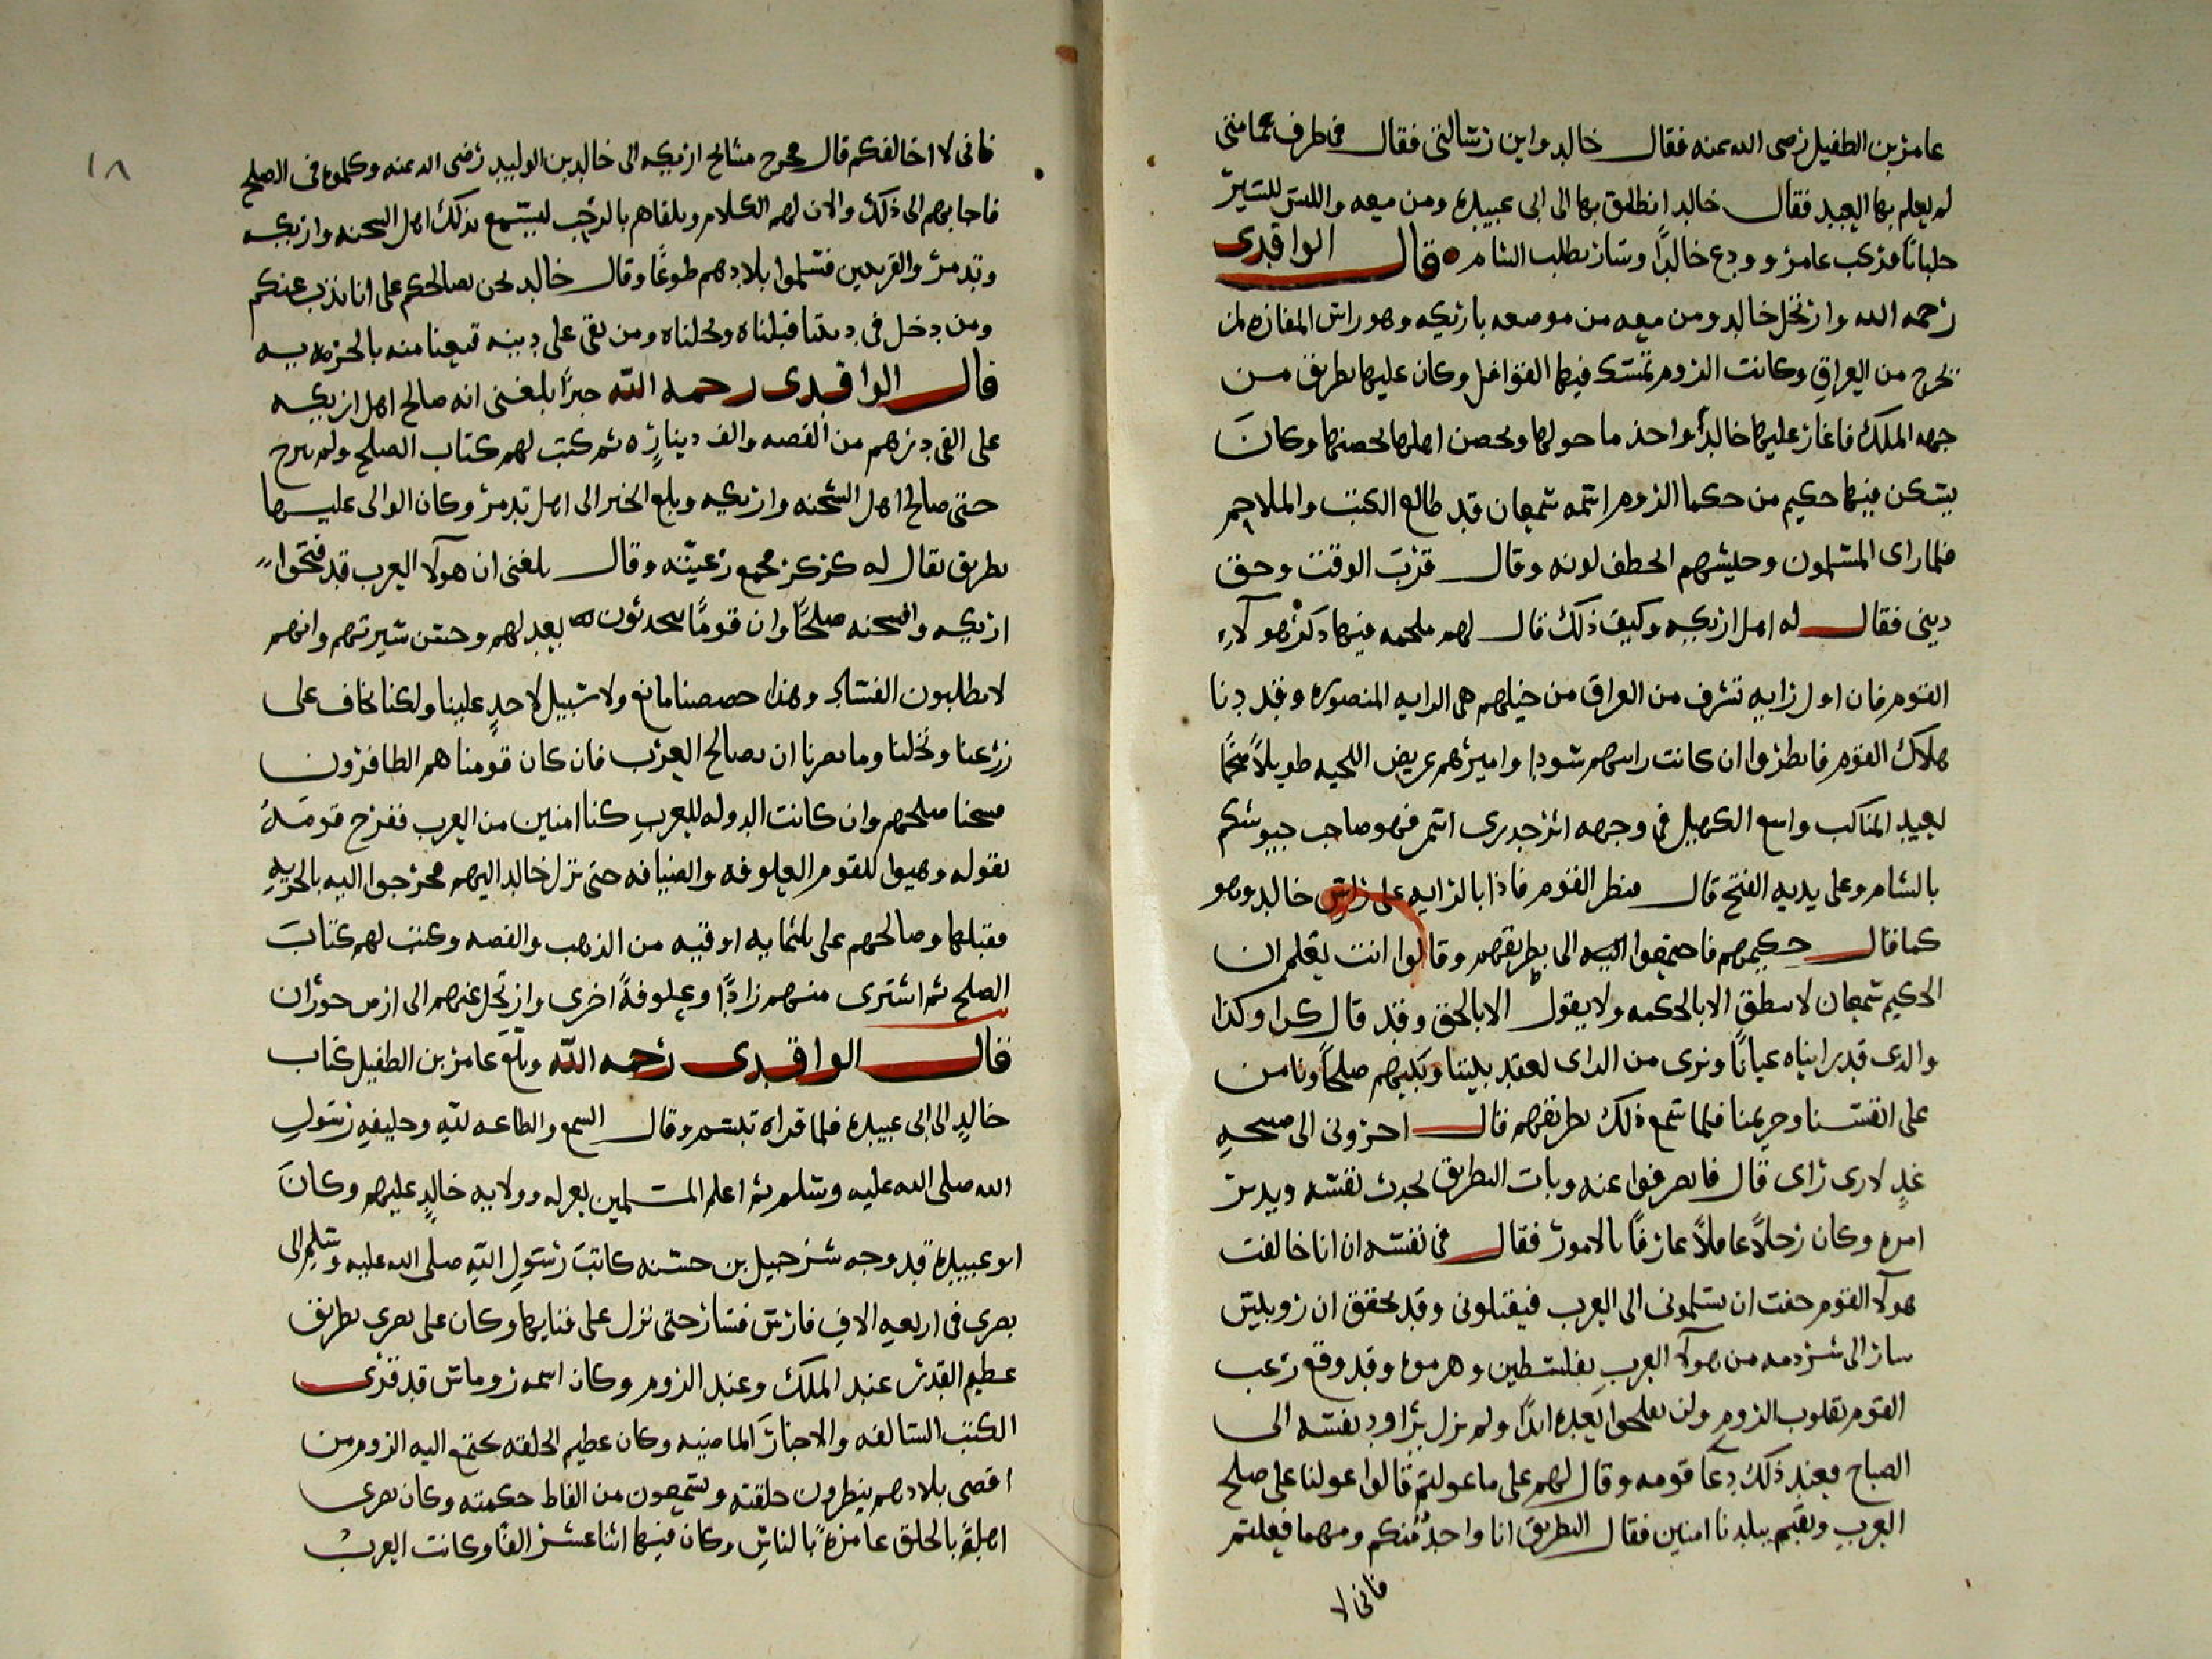 عامر بن الطفيل رضى الله عنه فقال خالد واين رسالتى فقال فى طرف عمامتى
لم يعلم بها العبيد فقال خالد انطلق بها الى ابى عبيده ومن معه واللبس للسير
جلبابا فركب عامر وودع خالدًا وسار يطلب الشام ه قال الواقدى
رحمه الله وارتحل خالد ومن معه من موضعه باركه وهو راس المفازه لمن
يخرج من العراق وكانت الروم تمسك فيها القوافل وكان عليها بطريق من
جهه الملك فاغار عليها خالدًا واخذ ما حولها وتحصن اهلها بحصنها وكان
يسكن فيها حكيم من حكما الروم اسمه شمعان قد طالع الكتب والملاحم
فلما راى المسلمون وجيشهم اخطف لونه وقال قرب الوقت وحق
دينى فقال له اهل اركه وكيف ذلك قال لهم ملحمه فيها ذكر هولاء
القوم فان اول رايه تشرف من العراق من خيلهم هى الرايه المنصوره وقد دنا
هلاك القوم فانظروا ان كانت رايتهم سودا واميرهم عريض اللحيه طويلاً ضخما
بعيد المناكب واسع الهيكل فى وجهه اثر جدرى اسمر فهو صاحب جيوشكم
بالشام وعلى يديه الفتح قال فنظر القوم فاذا بالرايه على راس خالد وهو
كما قال حكيمهم فاجتمعوا اليه الى بطريقهم وقالوا انت تعلم ان
الحكيم شمعان لا ينطق الا بالحكمه ولا يقول الا بالحق وقد قال كذا وكذا
والذى قد رايناه عيانًا ونرى من الراى نعقد بيننا وبينهم صلحًا ونامن
على انفسنا وحريمنا فلما سمع ذلك بطريقهم قال اخرونى الى صبيحه
غدٍ لارى راى قال فانصرفوا عنه وبات البطريق يحدث نفسه ويدبر
امره وكان رجلاً عاقلاً عارفًا بالامور فقال فى نفسه ان انا خالفت
هولا القوم خفت ان يسلمونى الى العرب فيقتلونى وقد تحقق ان روبيس
سار الى شرذمه من هولا العرب بفلسطين وهزموه وقد وقع رعب
القوم بقلوب الروم ولن يفلحوا بعده ابدًا ولم يزل يراود نفسه الى
الصباح فعند ذلك دعا قومه وقال لهم على ما عولتم قالوا عولنا على صلح
العرب ونقيم ببلدنا امنين فقال البطريق انا واحدٌ منكم ومهما فعلتم
فانى لا
١٨
فانى لا اخالفكم قال فخرج مشايخ اركه الى خالد بن الوليد رضى الله عنه وكلموه فى الصلح
فاجابهم الى ذلك والان لهم الكلام وتلقاهم بالرحب ليسمع بذلك اهل السخنه واركه
وتدمر والقريتين فسلموا بلادهم طوعًا وقال خالد نحن نصالحكم على انا نذب عنكم
ومن دخل فى ديننا قبلناه ونحلناه ومن بقى على دينه قنعنا منه بالجزيه
قال الواقدى رحمه الله خبرًا بلغنى انه صالح اهل اركه
على الفى درهم من الفضه والف دينار ه ثم كتب لهم كتاب الصلح ولم يبرح
حتى صالح اهل السخنه واركه وبلغ الخبر الى اهل تدمر وكان الوالى عليها
بطريق يقال له كركر فجمع رعيته وقال بلغنى ان هولا العرب قد فتحوا
اركه والسخنه صلحًا وان قومنا يتحدثون بعدلهم وحسن سيرتهم وانهم
لا يطلبون الفساد وهذا حصننا مانع ولا سبيل لاحدٍ علينا ولكنا نخاف على
زرعنا ونخلنا وما يضرنا ان نصالح العرب فان كان قومنا هم الظافرون
فسخنا صلحهم وان كانت الدوله للعرب كنا امنين من العرب ففرح قومه
بقوله وهيوا للقوم العلوفه والضيافه حتى نزل خالد اليهم فخرجوا اليه بالجزيه
فقبلها وصالحهم على ثلثمايه اوقيه من الذهب والفضه وكتب لهم كتاب
الصلح ثم اشترى منهم زادًا وعلوفةً اخرى وارتحل عنهم الى ارض حوران
قال الواقدى رحمه الله وبلغ عامر بن الطفيل كتاب
خالدٍ الى ابى عبيده فلما قراه تبسم وقال السمع والطاعه لله وخليفه رسول
الله صلى الله عليه وسلم ثم اعلم المسلمين بعزله وولايه خالدٍ عليهم وكان
ابو عبيدة قد وجه شرحبيل بن حسنه كاتب رسول الله صلى الله عليه وسلم الى
بصرى فى اربعه الاف فارس فسار حتى نزل على فنايها وكان على بصرى بطريق
عظيم القدر عند الملك وعند الروم وكان اسمه روماس قد قرى
الكتب السالفه والاخبار الماضيه وكان عظيم الخلقه يجتمع اليه الروم من
اقصى بلادهم ينظرون خلقته ويسمعون من الفاظ حكمته وكان بصرى
اهلةً بالخلق عامرةً بالناس وكان فيها اثنا عشر الفًا وكانت العرب